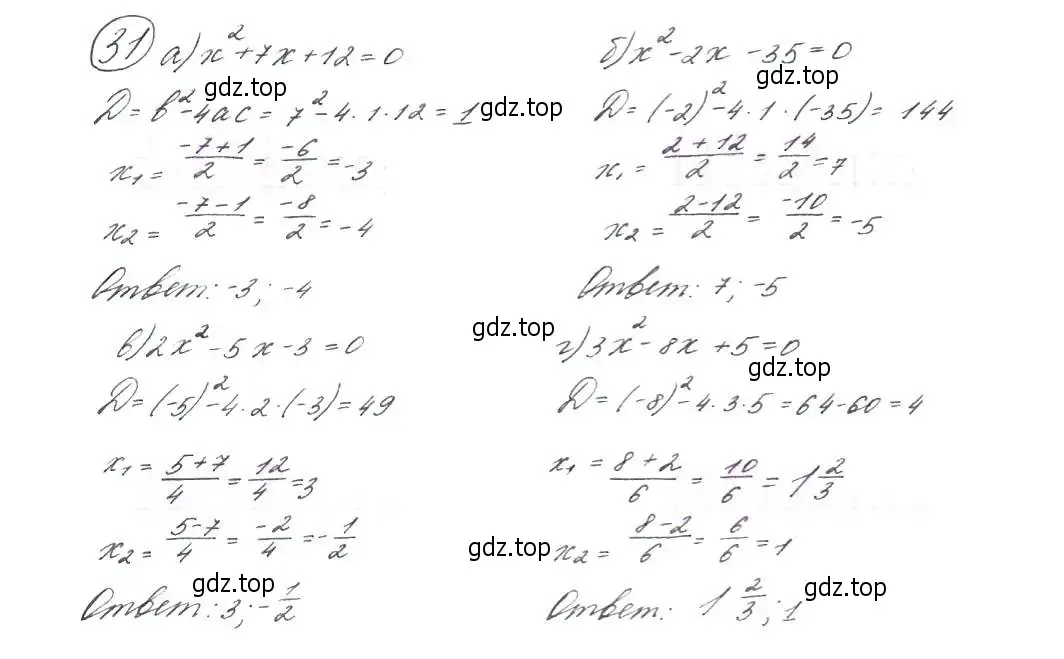 31 а) x² + 7x + 12 = 0
gdz.top
D = b² - 4ac = 7² - 4 · 1 · 12 = 1
gdz.top
x₁ = (-7+1)/2 = -6/2 = -3
x₂ = (-7-1)/2 = -8/2 = -4
Ответ: -3; -4
б) x² - 2x - 35 = 0
gdz.top
D = (-2)² - 4 · 1 · (-35) = 144
x₁ = (2+12)/2 = 14/2 = 7
x₂ = (2-12)/2 = -10/2 = -5
Ответ: 7; -5
в) 2x² - 5x - 3 = 0
gdz.top
D = (-5)² - 4 · 2 · (-3) = 49
x₁ = (5+7)/4 = 12/4 = 3
x₂ = (5-7)/4 = -2/4 = -1/2
gdz.top
gdz.top
Ответ: 3; -1/2
г) 3x² - 8x + 5 = 0
gdz.top
D = (-8)² - 4 · 3 · 5 = 64 - 60 = 4
x₁ = (8+2)/6 = 10/6 = 1 2/3
x₂ = (8-2)/6 = 6/6 = 1
gdz.top
Ответ: 1 2/3; 1